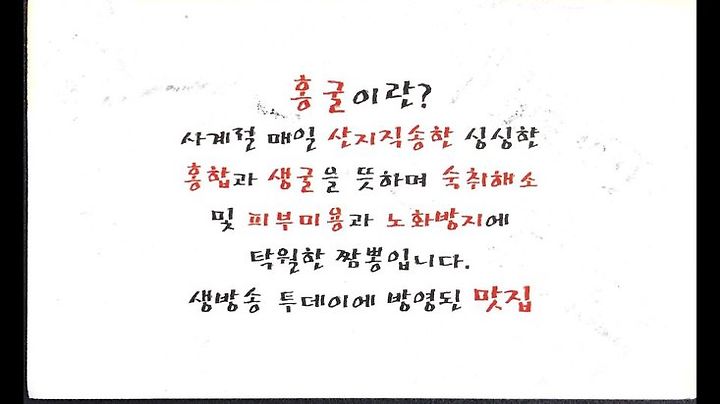 홍굴이란?
사계절 매일 산지직송한 싱싱한
홍합과 생굴을 뜻하며 숙취해소
및 피부미용과 노화방지에
탁월한 짬뽕입니다.
생방송 투데이에 방영된 맛집